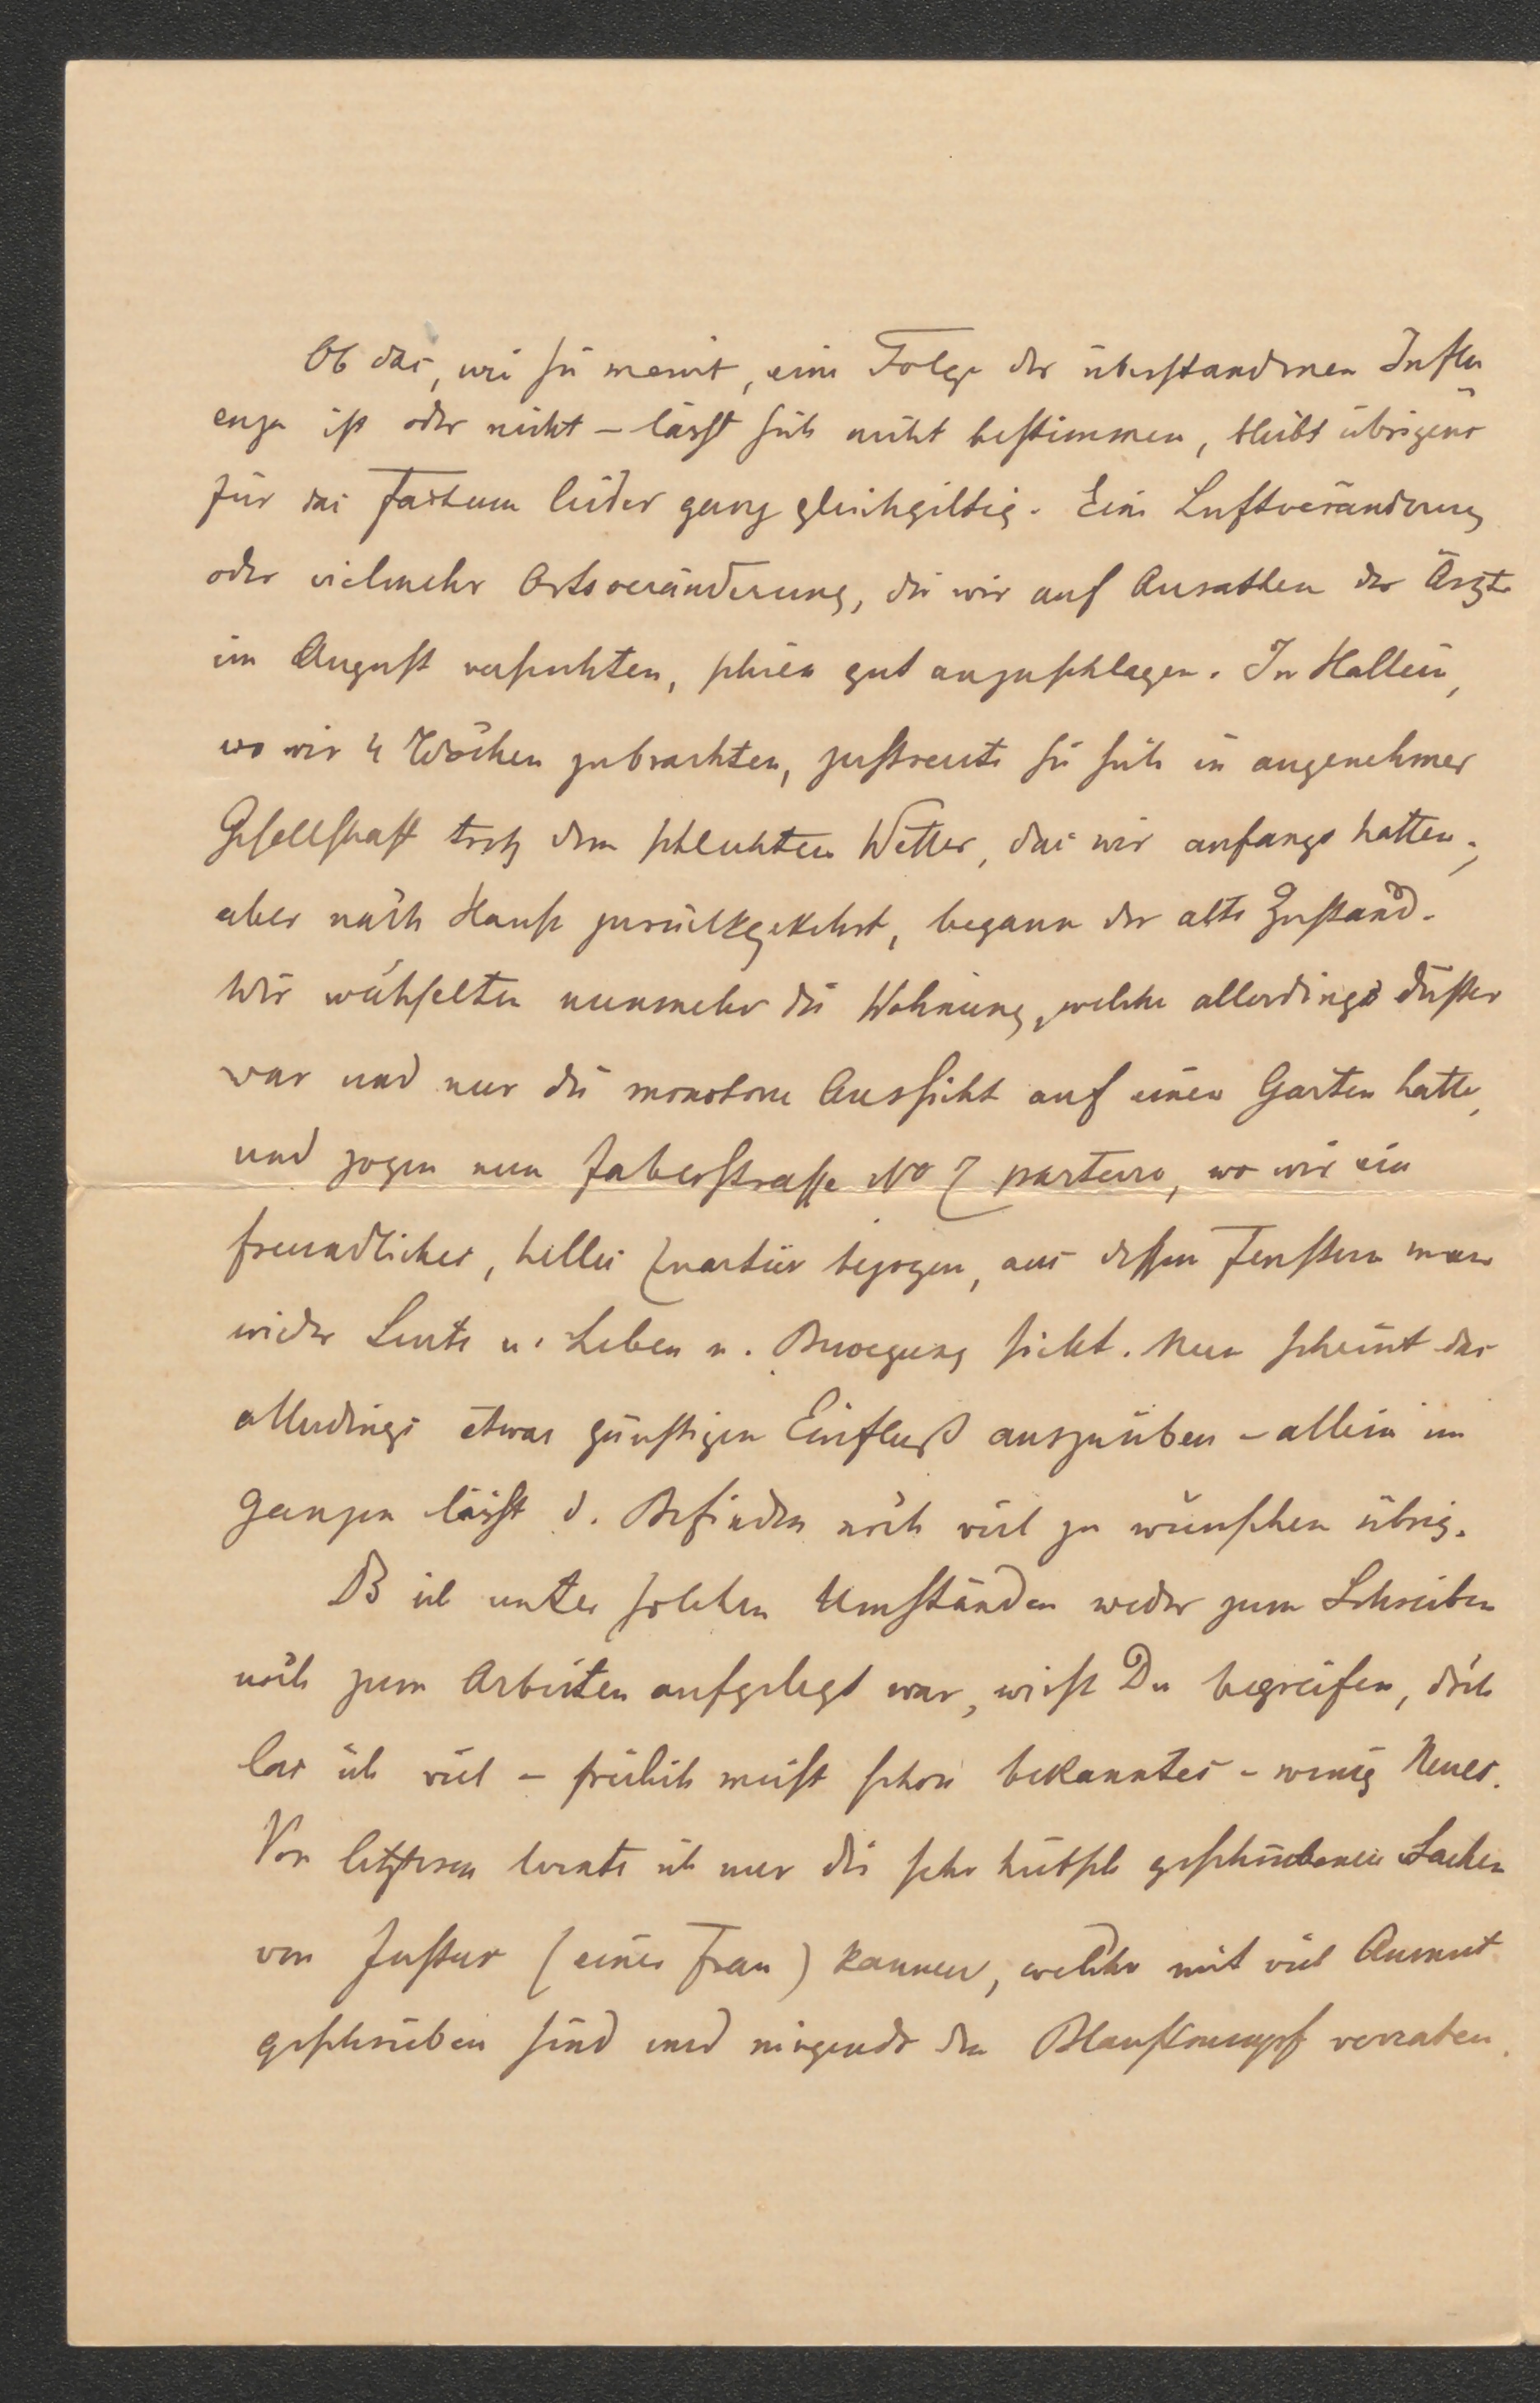 Ob das, wie sie meint, eine Folge der überstandenen Influ
enza ist oder nicht – lässt sich nicht bestimmen, bleibt übrigens
für das Factum leider ganz gleichgiltig. Eine Luftveränderung
oder vielmehr Ortsveränderung, die wir auf Anrathen der Ärzte
im August versuchten, schien gut anzuschlagen. In Hallein,
wo wir 4 Wochen zubrachten, zerstreute sie sich in angenehmer
Gesellschaft trotz dem schlechten Wetter, das wir anfangs hatten;
aber nach Hause zurückgekehrt, begann der alte Zustand.
Wir wechselten nunmehr die Wohnung, welche allerdings düster
war und nur die monotone Aussicht auf einen Garten hatte,
und zogen nun Faberstrasse No 7 parterre, wo wir ein
freundliches, helles Quartier bezogen, aus dessen Fenstern man
wieder Leute u. Leben u. Bewegung sieht. Nun scheint das
allerdings etwas günstigen Einfluß auszuüben – allein im
Ganzen lässt d. Befinden noch viel zu wünschen übrig.
Dß ich unter solchen Umständen weder zum Schreiben
noch zum Arbeiten aufgelegt war, wirst Du begreifen, doch
las ich viel – freilich meist schon bekanntes – wenig Neues.
Von letzteren lernte ich nur die sehr hübsch geschriebenen Sachen
von Juster (einer Frau) kennen, welche mit viel Anmut
geschrieben sind und nirgends den Blaustrumpf verraten.